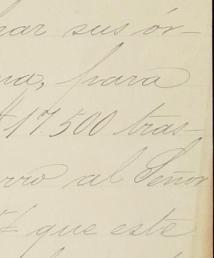 nar sus ór-
na, para
17500 tras-
rro al Señor
que este